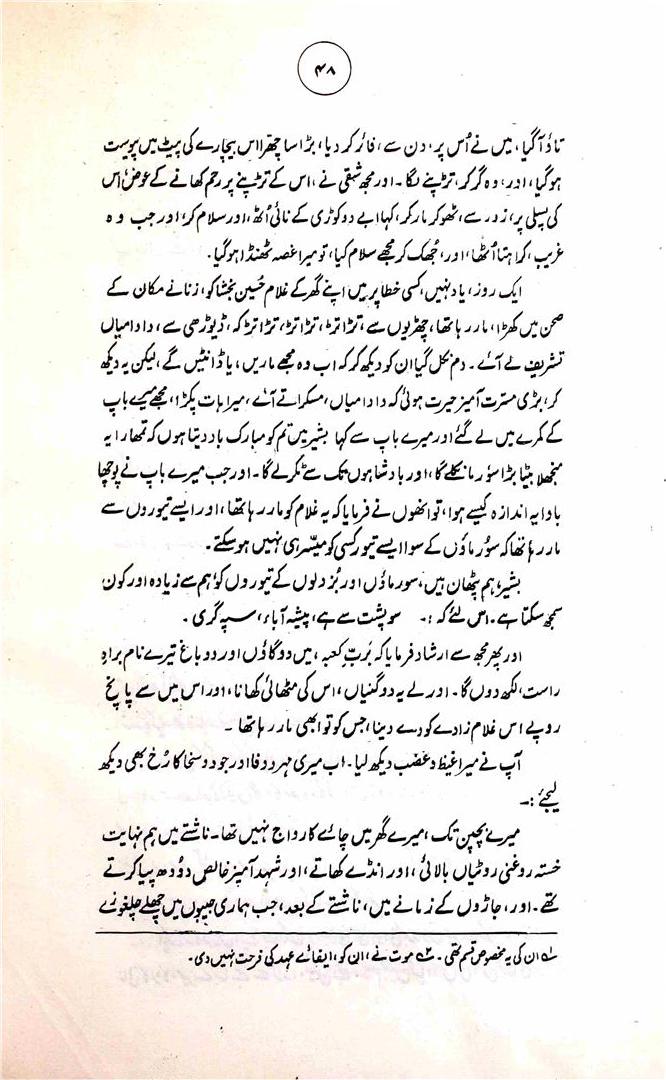 ۴۸
تاؤ آگیا، میں نے اُس پر، دن سے، فائر کر دیا، بڑا سا چھرا اس بیچارے کی پیٹ میں پیوست
ہوگیا، اور، وہ گر کر، تڑپنے لگا۔ اور مجھ شقی نے، اس کے تڑپنے پر رحم کھانے کے عوض اُس
کی پسلی پر، زور سے، ٹھوکر مار کر، کہا ابے دو کوڑی کے نائی اُٹھ، اور سلام کر، اور جب وہ
غریب، کراہتا اُٹھا، اور، جُھک کر مجھے سلام کیا، تو میرا غصہ ٹھنڈا ہوگیا۔
ایک روز، یاد نہیں، کسی خطا پر میں اپنے گھر کے غلام حُسین بخشا کو، زنانے مکان کے
صحن میں کھڑا، مار رہا تھا، چھڑیوں سے، تڑا تڑ، تڑا تڑ، تڑا تڑ کہ، ڈیوڑھی سے، دادا میاں
تشریف لے آئے۔ دم نکل گیا ان کو دیکھ کر کہ اب وہ مجھے ماریں، یا ڈانٹیں گے، لیکن یہ دیکھ
کر، بڑی مسرت آمیز حیرت ہوئی کہ دادا میاں، مسکراتے آئے، میرا ہات پکڑا، مجھے میرے باپ
کے کمرے میں لے گئے اور میرے باپ سے کہا بشیر میں تم کو مبارک باد دیتا ہوں کہ تمھارا یہ
منجھلا بیٹا بڑا سُورما نکلے گا، اور بادشاہوں تک سے ٹکر لے گا۔ اور جب میرے باپ نے پوچھا
باوا یہ اندازہ کیسے ہوا، تو انھوں نے فرمایا کہ یہ غلام کو مار رہا تھا، اور ایسے تیوروں سے
مار رہا تھا کہ سُورماؤں کے سوا ایسے تیور کسی کو میسّر ہی نہیں ہوسکتے۔
بشیر، ہم پٹھان ہیں، سورماؤں اور بُزدلوں کے تیوروں کو، ہم سے زیادہ اور کون
سمجھ سکتا ہے۔ اس لئے کہ :۔ سوپشت سے ہے، پیشۂ آباء، سپہ گری۔
اور پھر مجھ سے ارشاد فرمایا کہ بَربِّ کعبہ، میں دو گاؤں اور دو باغ تیرے نام براہِ
راست، لکھ دوں گا۔ اور لے یہ دو گنیاں، اس کی مٹھائی کھانا، اور اس میں سے پانچ
روپے اس غلام زادے کو دے دینا، جس کو تو ابھی مار رہا تھا۔
آپ نے میرا غیظ و غضب دیکھ لیا۔ اب میری مہر و وفا اور جود و سخا کا رُخ بھی دیکھ
لیجئے :۔
میرے بچپن تک، میرے گھر میں چائے کا رواج نہیں تھا۔ ناشتے میں ہم نہایت
خستہ روغنی روٹیاں بالائی، اور انڈے کھاتے، اور شہد آمیز خالص دُودھ پیا کرتے
تھے۔ اور، جاڑوں کے زمانے میں، ناشتے کے بعد، جب ہماری جیبوں میں چھلے چلغوزے
؂۱ ان کی یہ مخصوص قسم تھی۔ ؂۲ موت نے، ان کو، ایفائے عہد کی فرصت نہیں دی۔